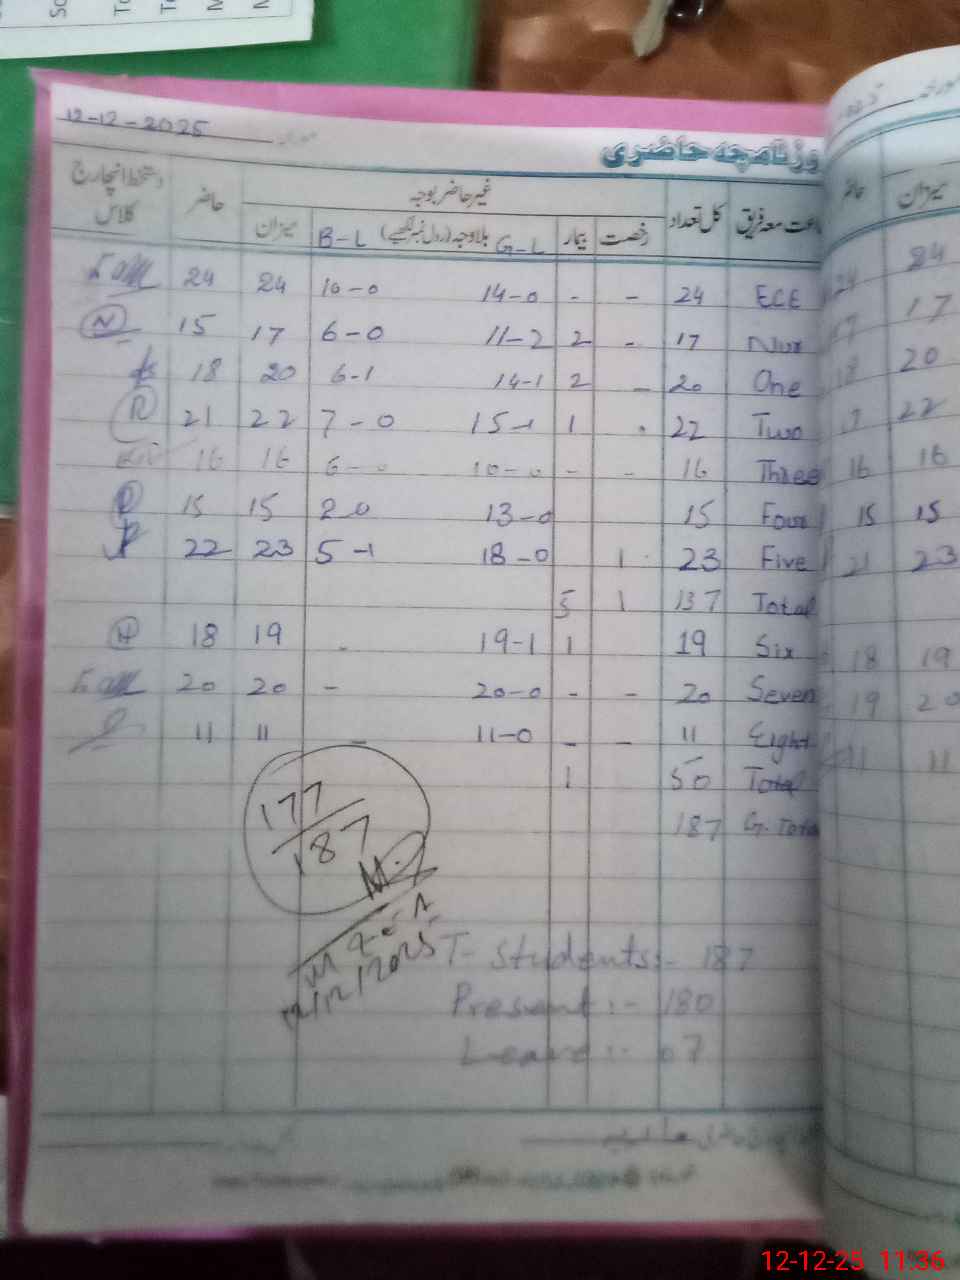 12-12-2025 مورخہ
روزنامچہ حاضری
جماعت معہ فریق کل تعداد غیر حاضر بوجہ حاضر دستخط انچارج کلاس
رخصت بیمار بلاوجہ (رول نمبر لکھیے) میزان
G-L B-L
حاضر میزان
24 24 10-0 14-0 - - 24 ECE
15 17 6-0 11-2 2 - 17 Nur
18 20 6-1 14-1 2 - 20 One
21 22 7-0 15-1 1 . 22 Two
16 16 6-0 10-0 - - 16 Three
15 15 2-0 13-0 15 Four
22 23 5-1 18-0 1 23 Five
5 1 137 Total
18 19 - 19-1 1 19 Six
20 20 - 20-0 - - 20 Seven
11 11 - 11-0 - - 11 Eight
1 50 Total
187 G. Total
24 24
17 17
18 20
22
16 16
15 15
21 23
18 19
19 20
11 11
177
187
12/12/2025
T- Students:- 187
Present:- 180
Leave:- 07
12-12-25 11:36